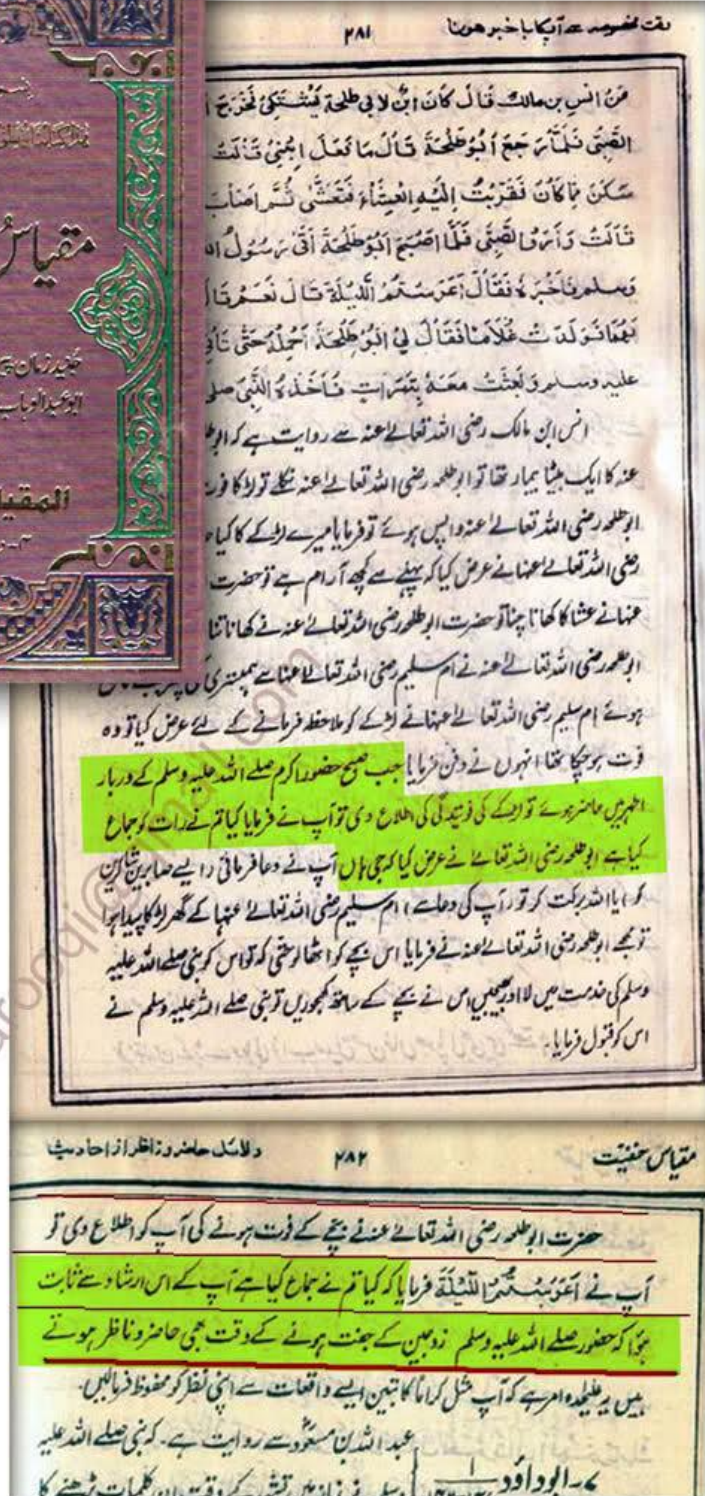 وقت مخصوصہ سے آپکا باخبر ہونا
۲۸۱
عَنْ انس بن مالک قَالَ كَانَ ابْنٌ لابی طلحة یَشْتَکِیْ فَخَرَجَ
الصَّبِیُّ فَلَمَّا رَجَعَ اَبُوْطَلْحَةَ قَالَ مَا فَعَلَ ابْنِیْ قَالَتْ
مَا کَانَ فَقَرَّبَتْ اِلَیْهِ الْعِشَاءَ فَتَعَشّٰی ثُمَّ اَصَابَ
قَالَتْ وَارُوا الصَّبِیَّ فَلَمَّا اَصْبَحَ اَبُوْطَلْحَةَ اَتٰی رَسُوْلُ
وَسلم فَاَخْبَرَهُ فَقَالَ اَعَرَسْتُمُ اللَّیْلَةَ قَالَ نَعَمْ قَالَ
فَوَلَدَتْ غُلَامًا فَقَالَ لِیْ اَبُوْطَلْحَةَ اَحْمِلْهُ حَتّٰی
علیہ وسلم وَبَعَثَتْ مَعَهُ بِتَمَرَاتٍ فَاَخَذَهُ النَّبِیُّ صلی
انس ابن مالک رضی اللہ تعالےٰ عنہ سے روایت ہے کہ
عنہ کا ایک بیٹا بیمار تھا تو ابوطلحہ رضی اللہ تعالےٰ عنہ نکلے تو لڑکا
ابوطلحہ رضی اللہ تعالےٰ عنہ واپس ہوئے تو فرمایا میرے لڑکے کا کیا
رضی اللہ تعالےٰ عنہا نے عرض کیا کہ پہلے سے کچھ آرام ہے تو حضرت
عنہا نے عشا کا کھانا چنا تو حضرت ابوطلحہ رضی اللہ تعالےٰ عنہ نے کھانا تنا
ابوطلحہ رضی اللہ تعالےٰ عنہ نے ام سلیم رضی اللہ تعالےٰ عنہا سے ہمبستری کی
ہوئے ام سلیم رضی اللہ تعالےٰ عنہا نے لڑکے کو ملاحظہ فرمانے کے لئے عرض کیا تو وہ
فوت ہوچکا تھا انہوں نے دفن فرمایا جب صبح حضور اکرم صلے اللہ علیہ وسلم کے دربار
اطہر میں حاضر ہوئے تو لڑکے کی فوتیدگی کی اطلاع دی تو آپ نے فرمایا کیا تم نے رات کو جماع
کیا ہے ابوطلحہ رضی اللہ تعالےٰ نے عرض کیا کہ جی ہاں آپ نے دعا فرمائی (ایسے صابرین شاکرین
کو) یا اللہ برکت کر تو (آپ کی دعا سے) ام سلیم رضی اللہ تعالےٰ عنہا کے گھر لڑکا پیدا ہوا
تو مجھے ابوطلحہ رضی اللہ تعالےٰ عنہ نے فرمایا اس بچے کو اٹھا لو حتّٰی کہ تو اس کو نبی صلے اللہ علیہ
وسلم کی خدمت میں لا اور بھیجیں اس نے بچے کے ساتھ کھجوریں تو نبی صلے اللہ علیہ وسلم نے
اس کو قبول فرمایا۔
مقیاس
ابوعبدالوہاب
المقیا
مقیاس حنفیت
۲۸۲
دلائل حاضر و ناظر از احادیث
حضرت ابوطلحہ رضی اللہ تعالےٰ عنہ نے بچے کے فوت ہونے کی آپ کو اطلاع دی تو
آپ نے اَعَرَسْتُمُ اللَّیْلَةَ فرمایا کہ کیا تم نے جماع کیا ہے آپ کے اس ارشاد سے ثابت
ہوا کہ حضور صلے اللہ علیہ وسلم زوجین کے جفت ہونے کے وقت بھی حاضر و ناظر ہوتے
ہیں یہ علیحدہ امر ہے کہ آپ مثل کراماً کاتبین ایسے واقعات سے اپنی نظر کو محفوظ فرمالیں۔
عبد اللہ بن مسعودؓ سے روایت ہے۔ کہ نبی صلے اللہ علیہ
۷۔ ابوداؤد
وسلم نے نماز میں تشہد کے وقت ان کلمات پڑھنے کا